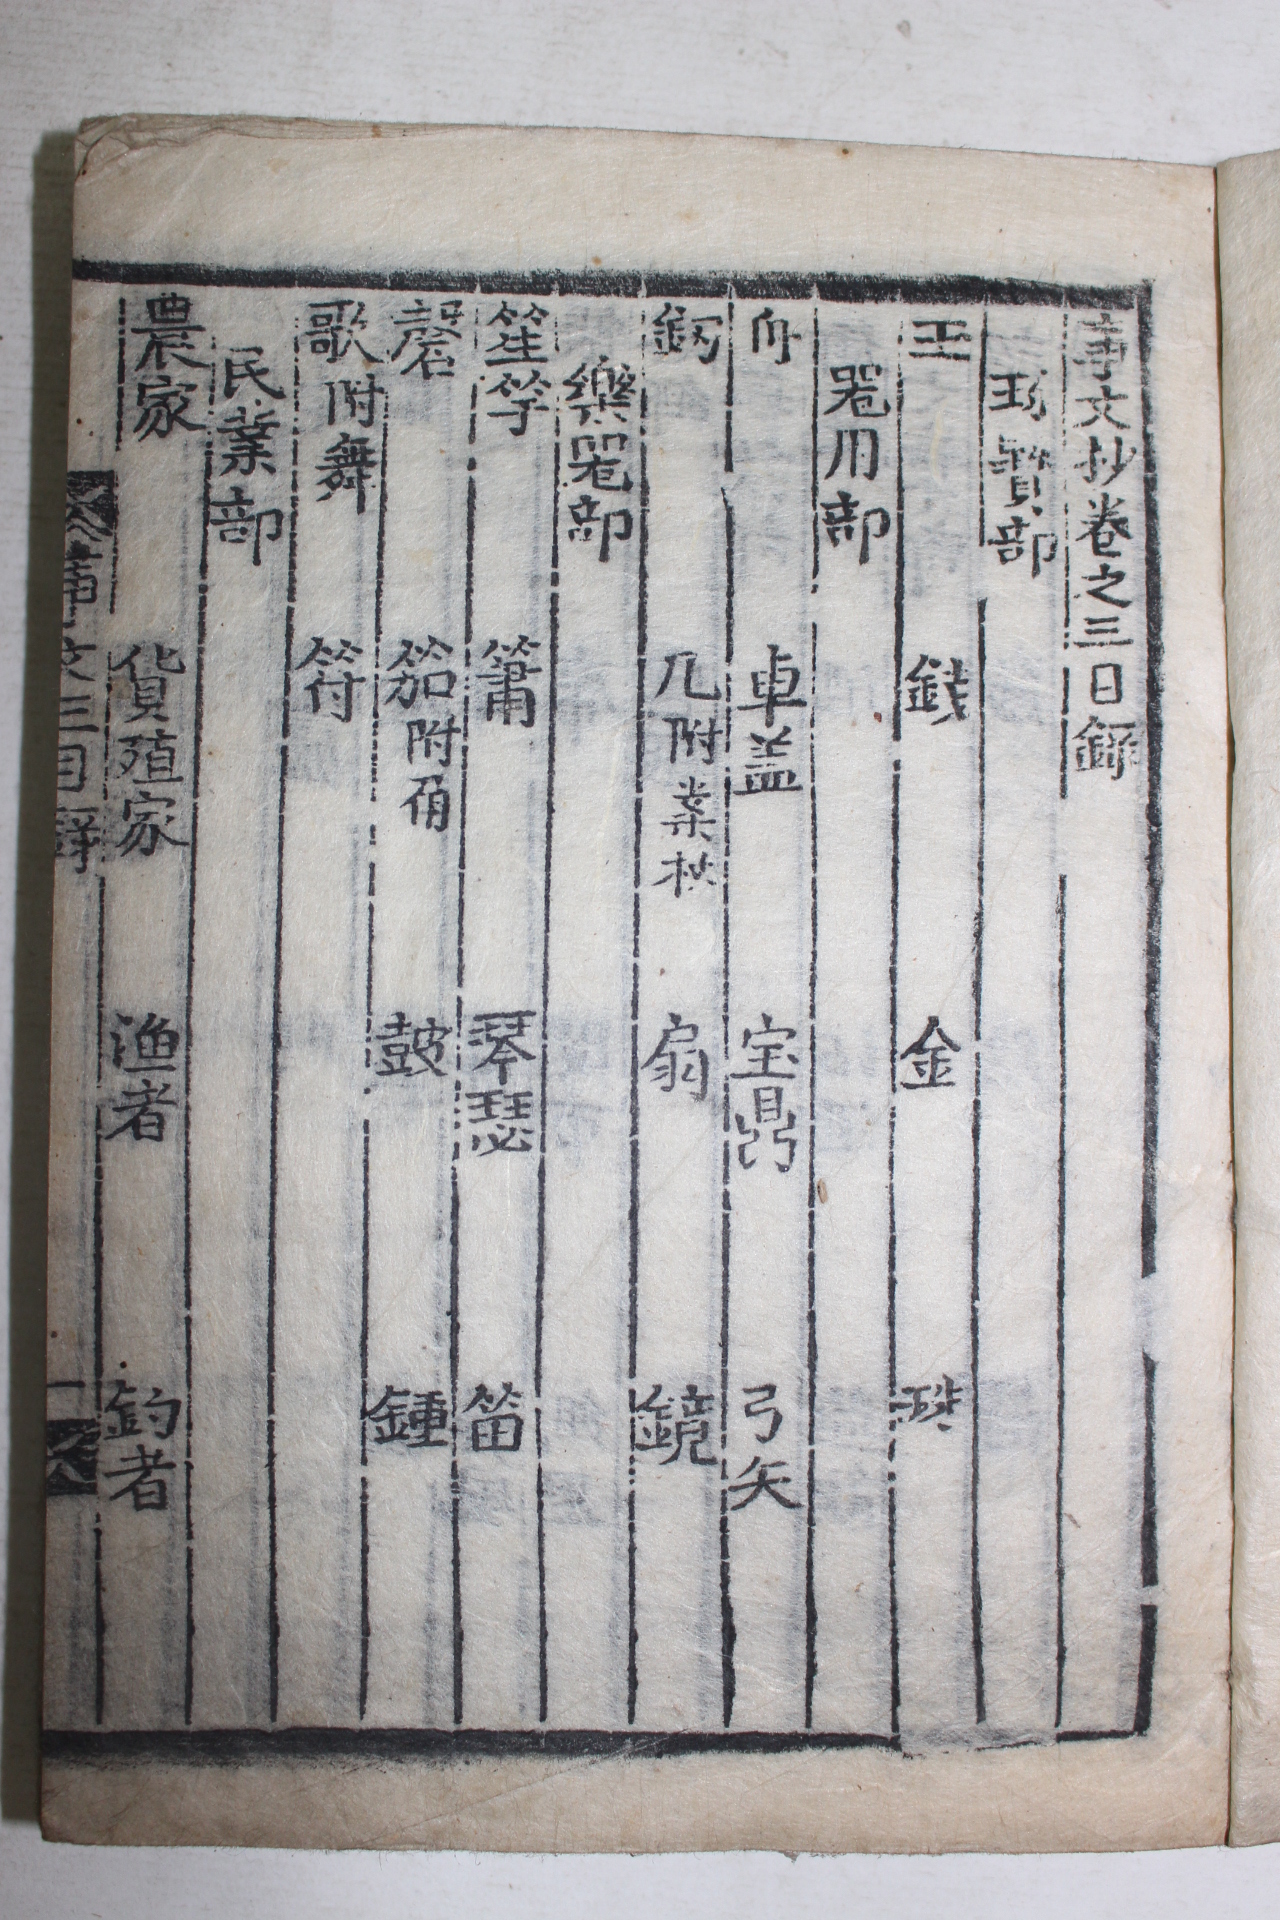 事文抄卷之三目錄
珎寶部
玉 錢 金 珠
器用部
舟 車盖 宝鼎 弓矢
釼 几附案杖 扇 鏡
樂器部
笙竽 簫 琴瑟 笛
磬 笳附角 鼓 鍾
歌附舞 符
民業部
農家 貨殖家 渔者 釣者
事文三目錄 一